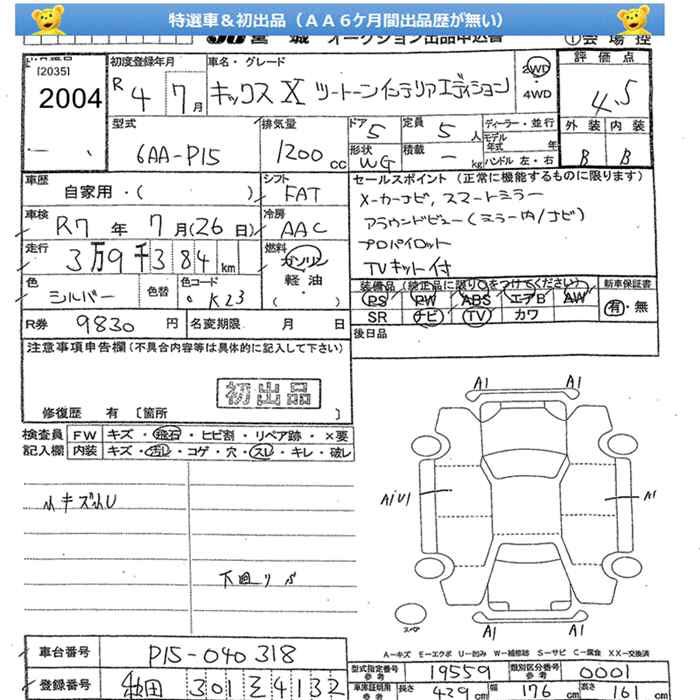 特選車＆初出品（ＡＡ６ケ月間出品歴が無い）
[2035]
2004
初度登録年月
R 4 7月
車名・グレード
キックス X ツートーンインテリアエディション
2WD・4WD
評価点
4.5
型式
6AA-P15
排気量
1200cc
ドア 5
定員 5人
ディーラー・並行
モデル年式 年
形状 WG
積載 ー kg
ハンドル 左・右
外装 内装
B B
車歴
自家用・( )
シフト
FAT
セールスポイント（正常に機能するものに限ります）
メーカーナビ、スマートミラー
アラウンドビュー(ミラー内/ナビ)
プロパイロット
TVキット付
車検
R7年 7月(26日)
冷房
AAC
走行
3万9千384km
燃料
ガソリン・軽油
( )
色
シルバー
色替
色コード
K23
装備品（純正品に限り○をつけてください） 新車保証書
PS PW ABS エアB AW 有・無
SR ナビ TV カワ
R券 9830円
名変期限 月 日
後日品
注意事項申告欄(不具合内容等は具体的に記入して下さい)
初出品
修復歴 有 〔箇所 〕
検査員記入欄
FW キズ・飛石・ヒビ割・リペア跡・×要
内装 キズ・汚レ・コゲ・穴・スレ・キレ・破レ
小キズ小U
下回りS
A1 A1
A1U1 A1
スペア
A1 A1
A－キズ E－エクボ U－凹み W－補修跡 S－サビ C－腐食 XX－交換済
車台番号 P15-040318
型式指定番号 参考 19559
類別区分番号 参考 0001
登録番号 秋田 301 そ 4132
車庫証明用 参考 長さ 429cm 幅 176cm 高さ cm